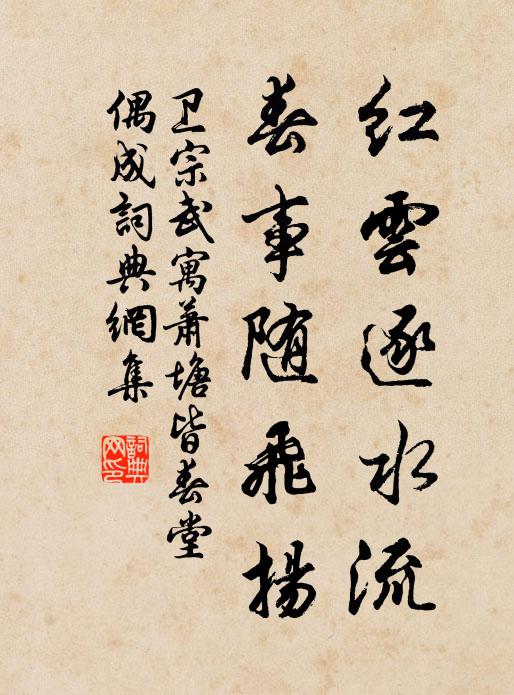 红雲逐水流
春事随飛揚
卫宗武寓萧塘皆春堂
偶成詞典網集
詞典网印